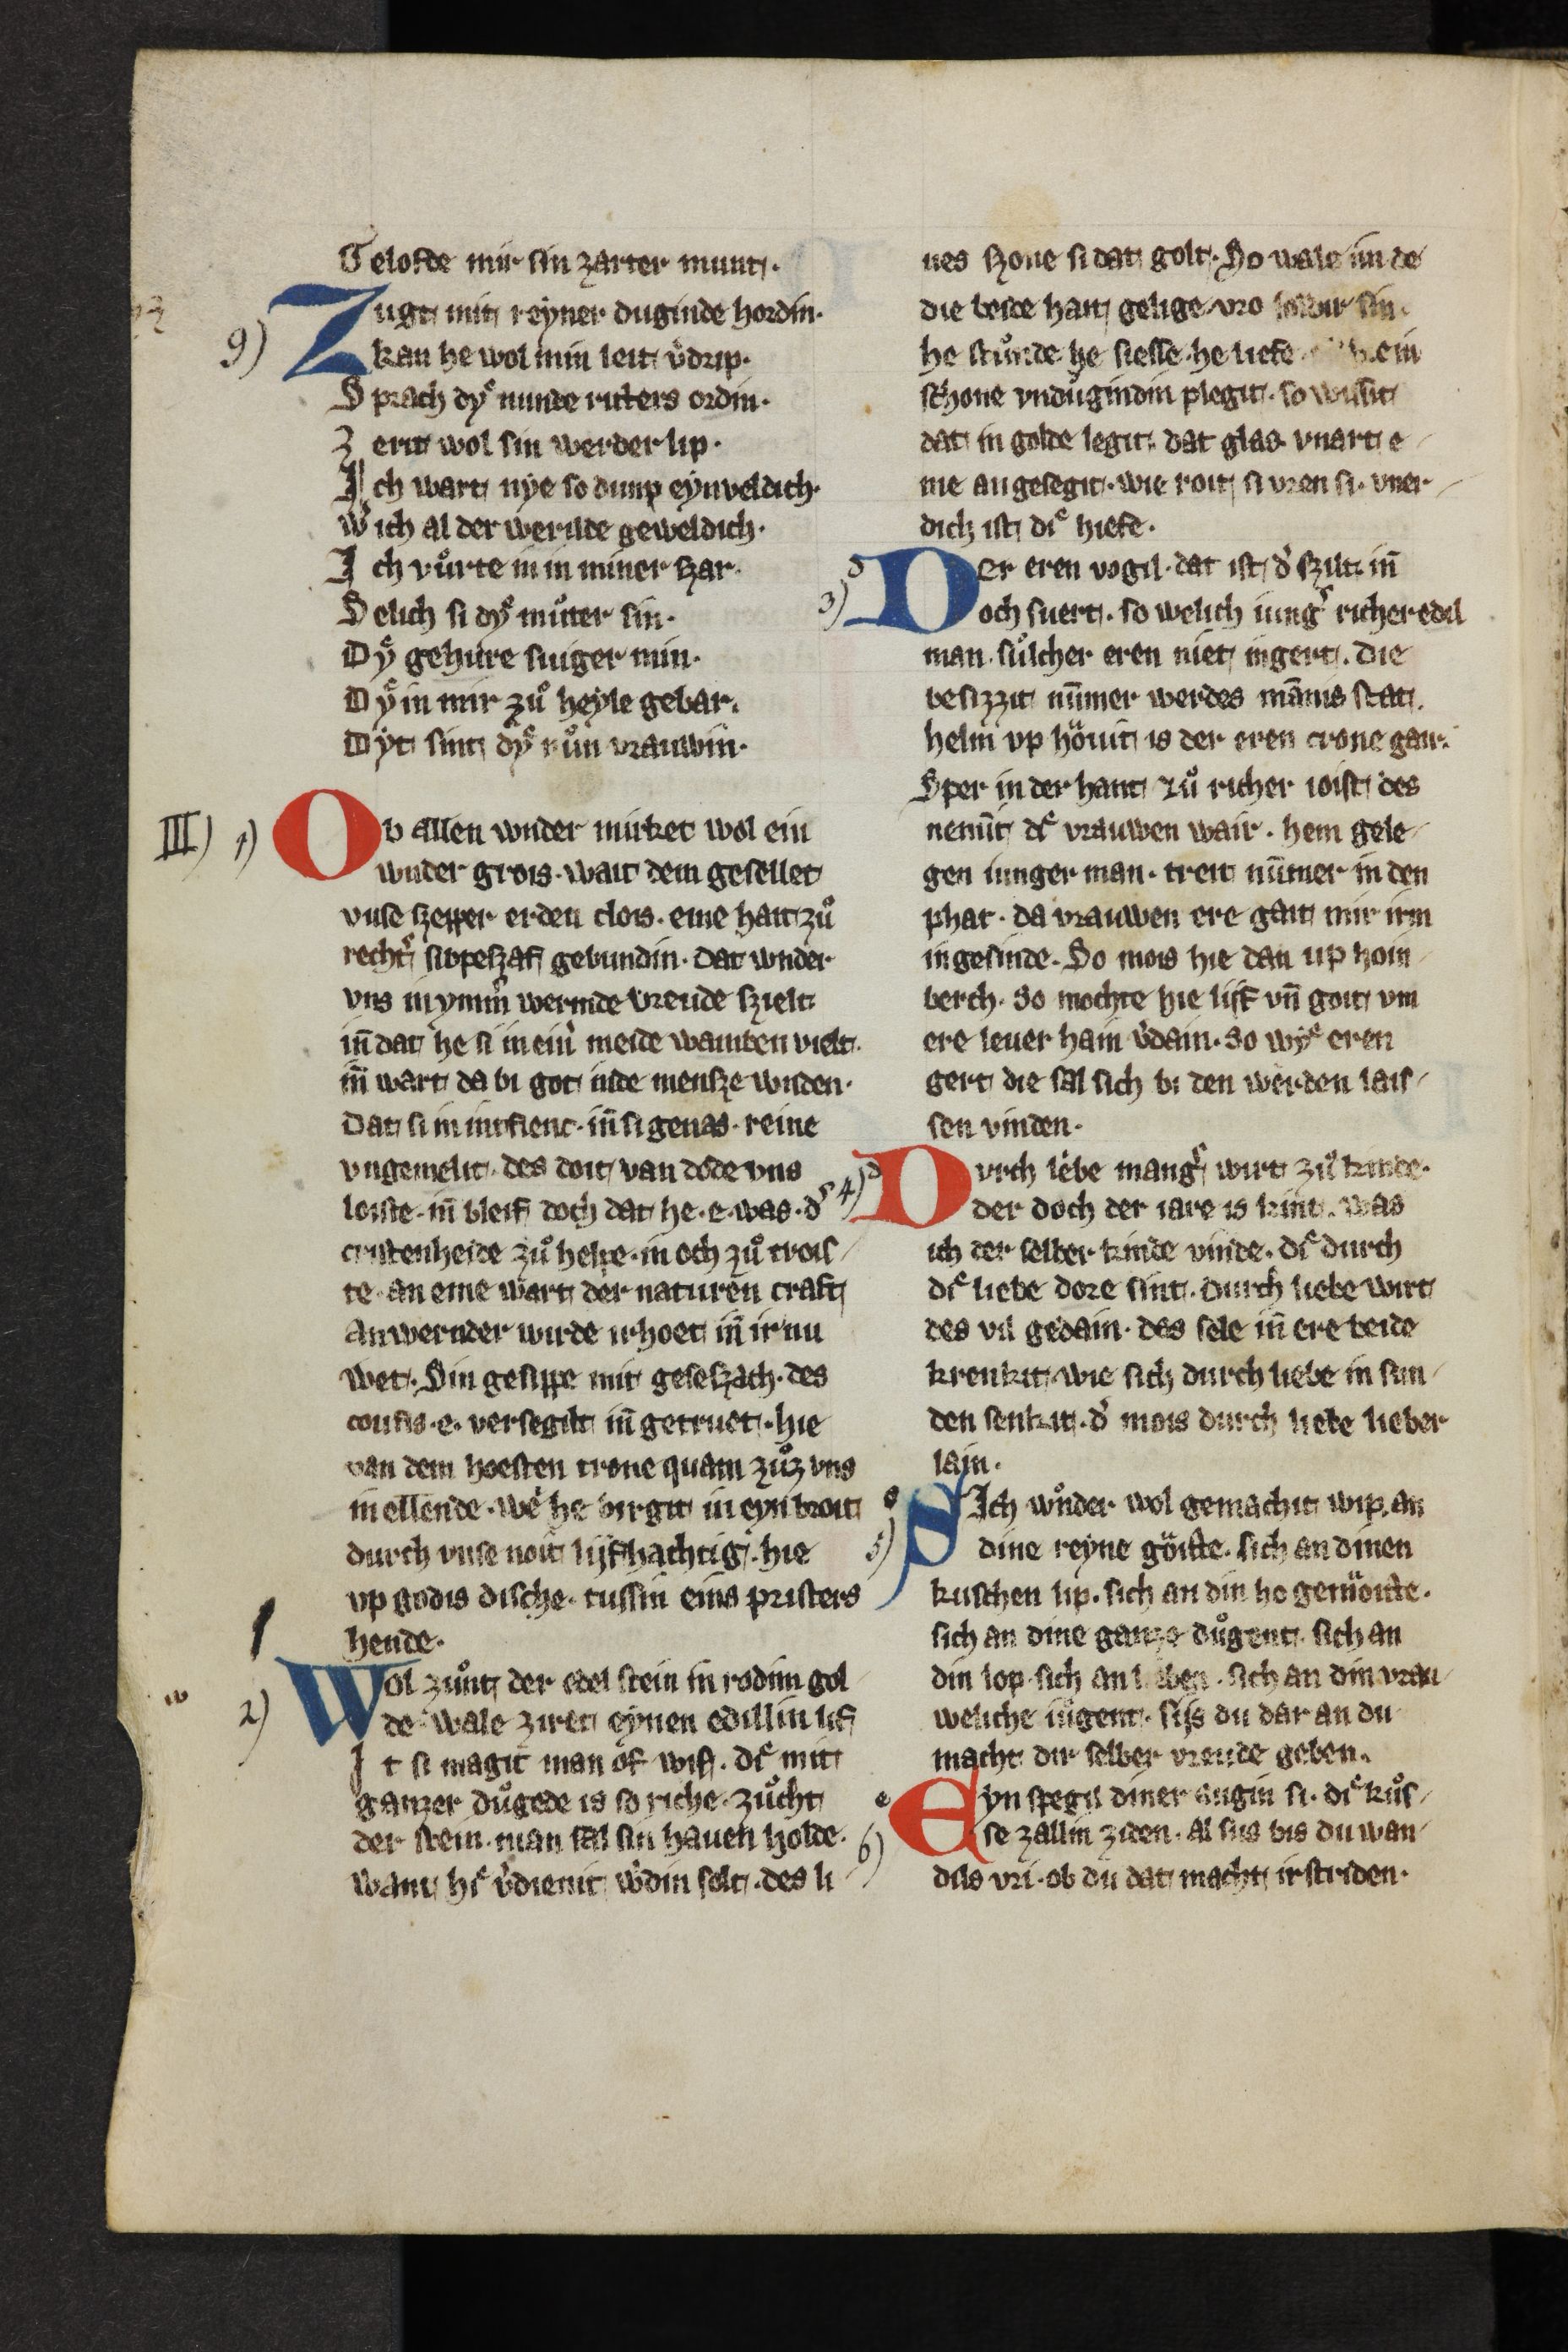 Gelofde mir sin zarter munt.
9) Zugt mit reyner duginde hordin.
kan he wol min leit v̓drip.
Sprach dyͤ nunde ritters ordin.
Zerit wol sin werder lip.
Ich wart nye so dump eynveldich.
Wich al der werilde geweldich.
Ich vuͦrte in in miner szar.
Selich si dyͤ muͦter sin.
Dyͤ gehure suiger min.
Dyͤ in mir zuͦ heyle gebar.
Dyt sint dyͤ nuͦin vrauwin.
III) 1) Ob allen wnder mirket wol ein
wnder grois. wait dem gesellet
vnse szepper erden clois. eine hait zuͦ
recht̓ sibpeszaf gebundin. dat wnder
vns in ymm̓ wernde vreude szielt
in̄ dat he si in ein̓ meide wamben vielt.
in̄ wart da bi got inde mensze wnden.
Dat si in intfienc. in̄ si genas. reine
vngemelit. des doit van dode vns
loiste. in̄ bleif doch dat he. e. was. d̓
cristenheide zuͦ helpe. in och zuͦ trois
te. an eme wart der naturen craft
an wernder wirde irhoet in̄ irnu
wet. Sin gesippe mit geselszach. des
confis. e. versegilt in̄ getruet. hie
van dem hoesten trone quam zuͦz vns
in ellende. we he birgit in eyn broit
durch vnse noit lijfhachtig. hie
vp godis dische. tussin eins pristers
hende.
2) Wol zuͦnt der edel stein in rodim gol
de. wale ziret eynen edillin lif
It si magit man of wif. diͤ mit
ganzer duͦgede is so riche. zuͦcht
der stein. man sal sin hauen holde.
want hiͤ v̓dienit w̓din solt. des li
nes szone si dat golt. So wale in de
die beide hait gelige vro sin.
he stuͦnde he siesse. he liefe
schone vnduͦgindin plegit. so wissit
dat in golde legit. dat glas vnart e
me angesegit. wie roit si vren si. vner
dich ist diͤ hiefe.
3) Der eren vogil. dat ist d̓ szilt. in̄
och suert. so welich iung̓ richer edil
man. suͦlcher eren niet ingert. die
besizzit nūmer werdes mānis stat.
helm vp höuit is der eren crone gair.
Sper in der hant zuͦ richer ioist des
nemīt diͤ vrauwen wair. hem gele
gen iunger man. treit nūmer in den
phat. da vrauwen ere gait mir irm
ingesinde. So mois hie dan up hoin
berch. So mochte hie lijf vn̄ goit vm
ere leuer hain v̓dain. So wyͤ eren
gert die sal sich bi den werden lais
sen vinden.
4) Durch lebe mang̓ wirt zuͦ kinde.
der doch der iare is kint. was
ich der selber kinde vinde. diͤ durch
diͤ liebe dore sint. durch liebe wirt
des vil gedain. des sele in̄ ere beide
krenkit. wie sich durch liebe in sun
den senkit. d̓ mois durch liebe lieber
lain.
5) SIch wuͦnder wol gemachit wip. an
dine reyne göitte. sich an dinen
kuschen lip. sich an din ho gemöitte.
sich an dine ganze duͦgent. sich an
din lop. sich an sich an din vrau
weliche iuͦgent. sijs du dar an du
macht dir selber vreude geben.
6) Eyn spegil diner augin si. diͤ kuͦs
se zallin ziden. al sus bis du wan
dils vri. ob du dat macht irstriden.